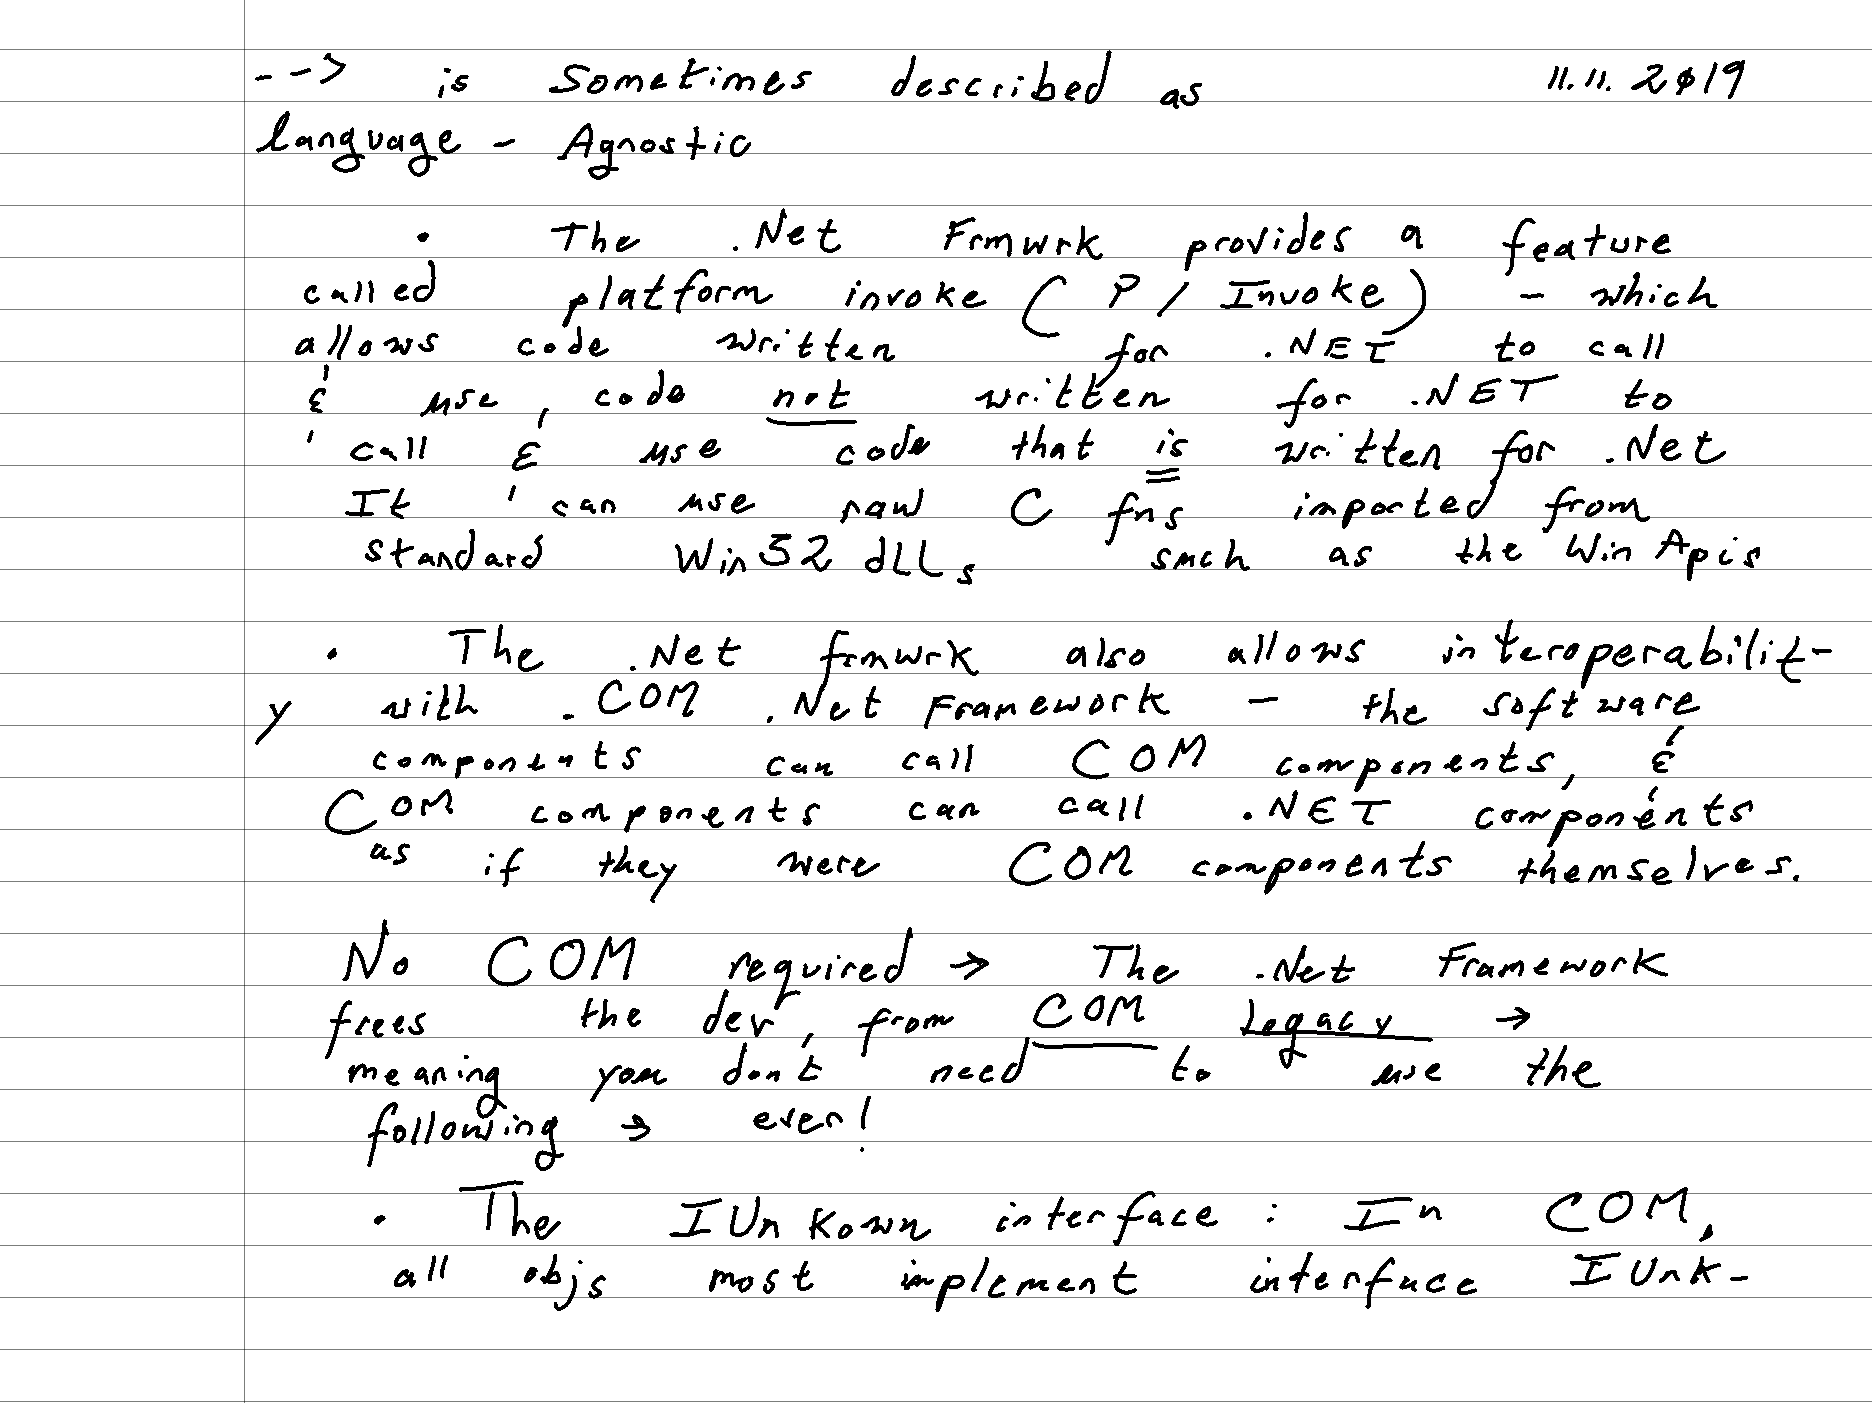 --> is Sometimes described as 11.11.2019
language - Agnostic
• The .Net Frmwrk provides a feature
called platform invoke (P/Invoke) - which
allows code written for .NET to call
& use, code not written for .NET to
call & use code that is written for .Net
It can use raw C fns imported from
standard Win32 dLLs such as the Win Apis
• The .Net frmwrk also allows interoperabilit-
y with .COM .Net Framework - the software
components can call COM components, &
COM components can call .NET components
as if they were COM components themselves.
No COM required → The .Net Framework
frees the dev, from COM Legacy →
meaning you don't need to use the
following → ever!
• The IUnKown interface : In COM,
all objs most implement interface IUnk-